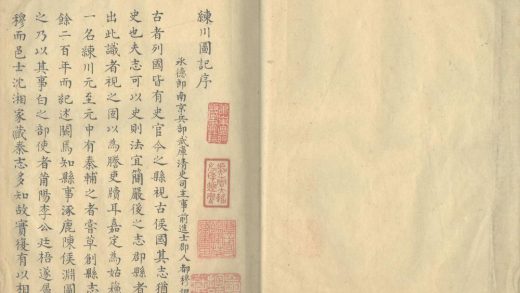 練川圖記序
承德郎南京兵部武庫清吏司主事前進士郡人都穆
古者列國皆有史官今之縣視古侯國其志猶
史也夫志可以史則法宜簡嚴後之志郡縣者
出此識者視之固以為謄吏牘耳嘉定為姑蘇
一名練川元至元中有秦輔之者嘗草創縣志
餘二百年而紀述闕焉知縣事涿鹿陳侯淵圖
之乃以其事白之部使者莆陽李公廷梧遂屬
穆而邑士沈湘家藏秦志多知故實復有以相